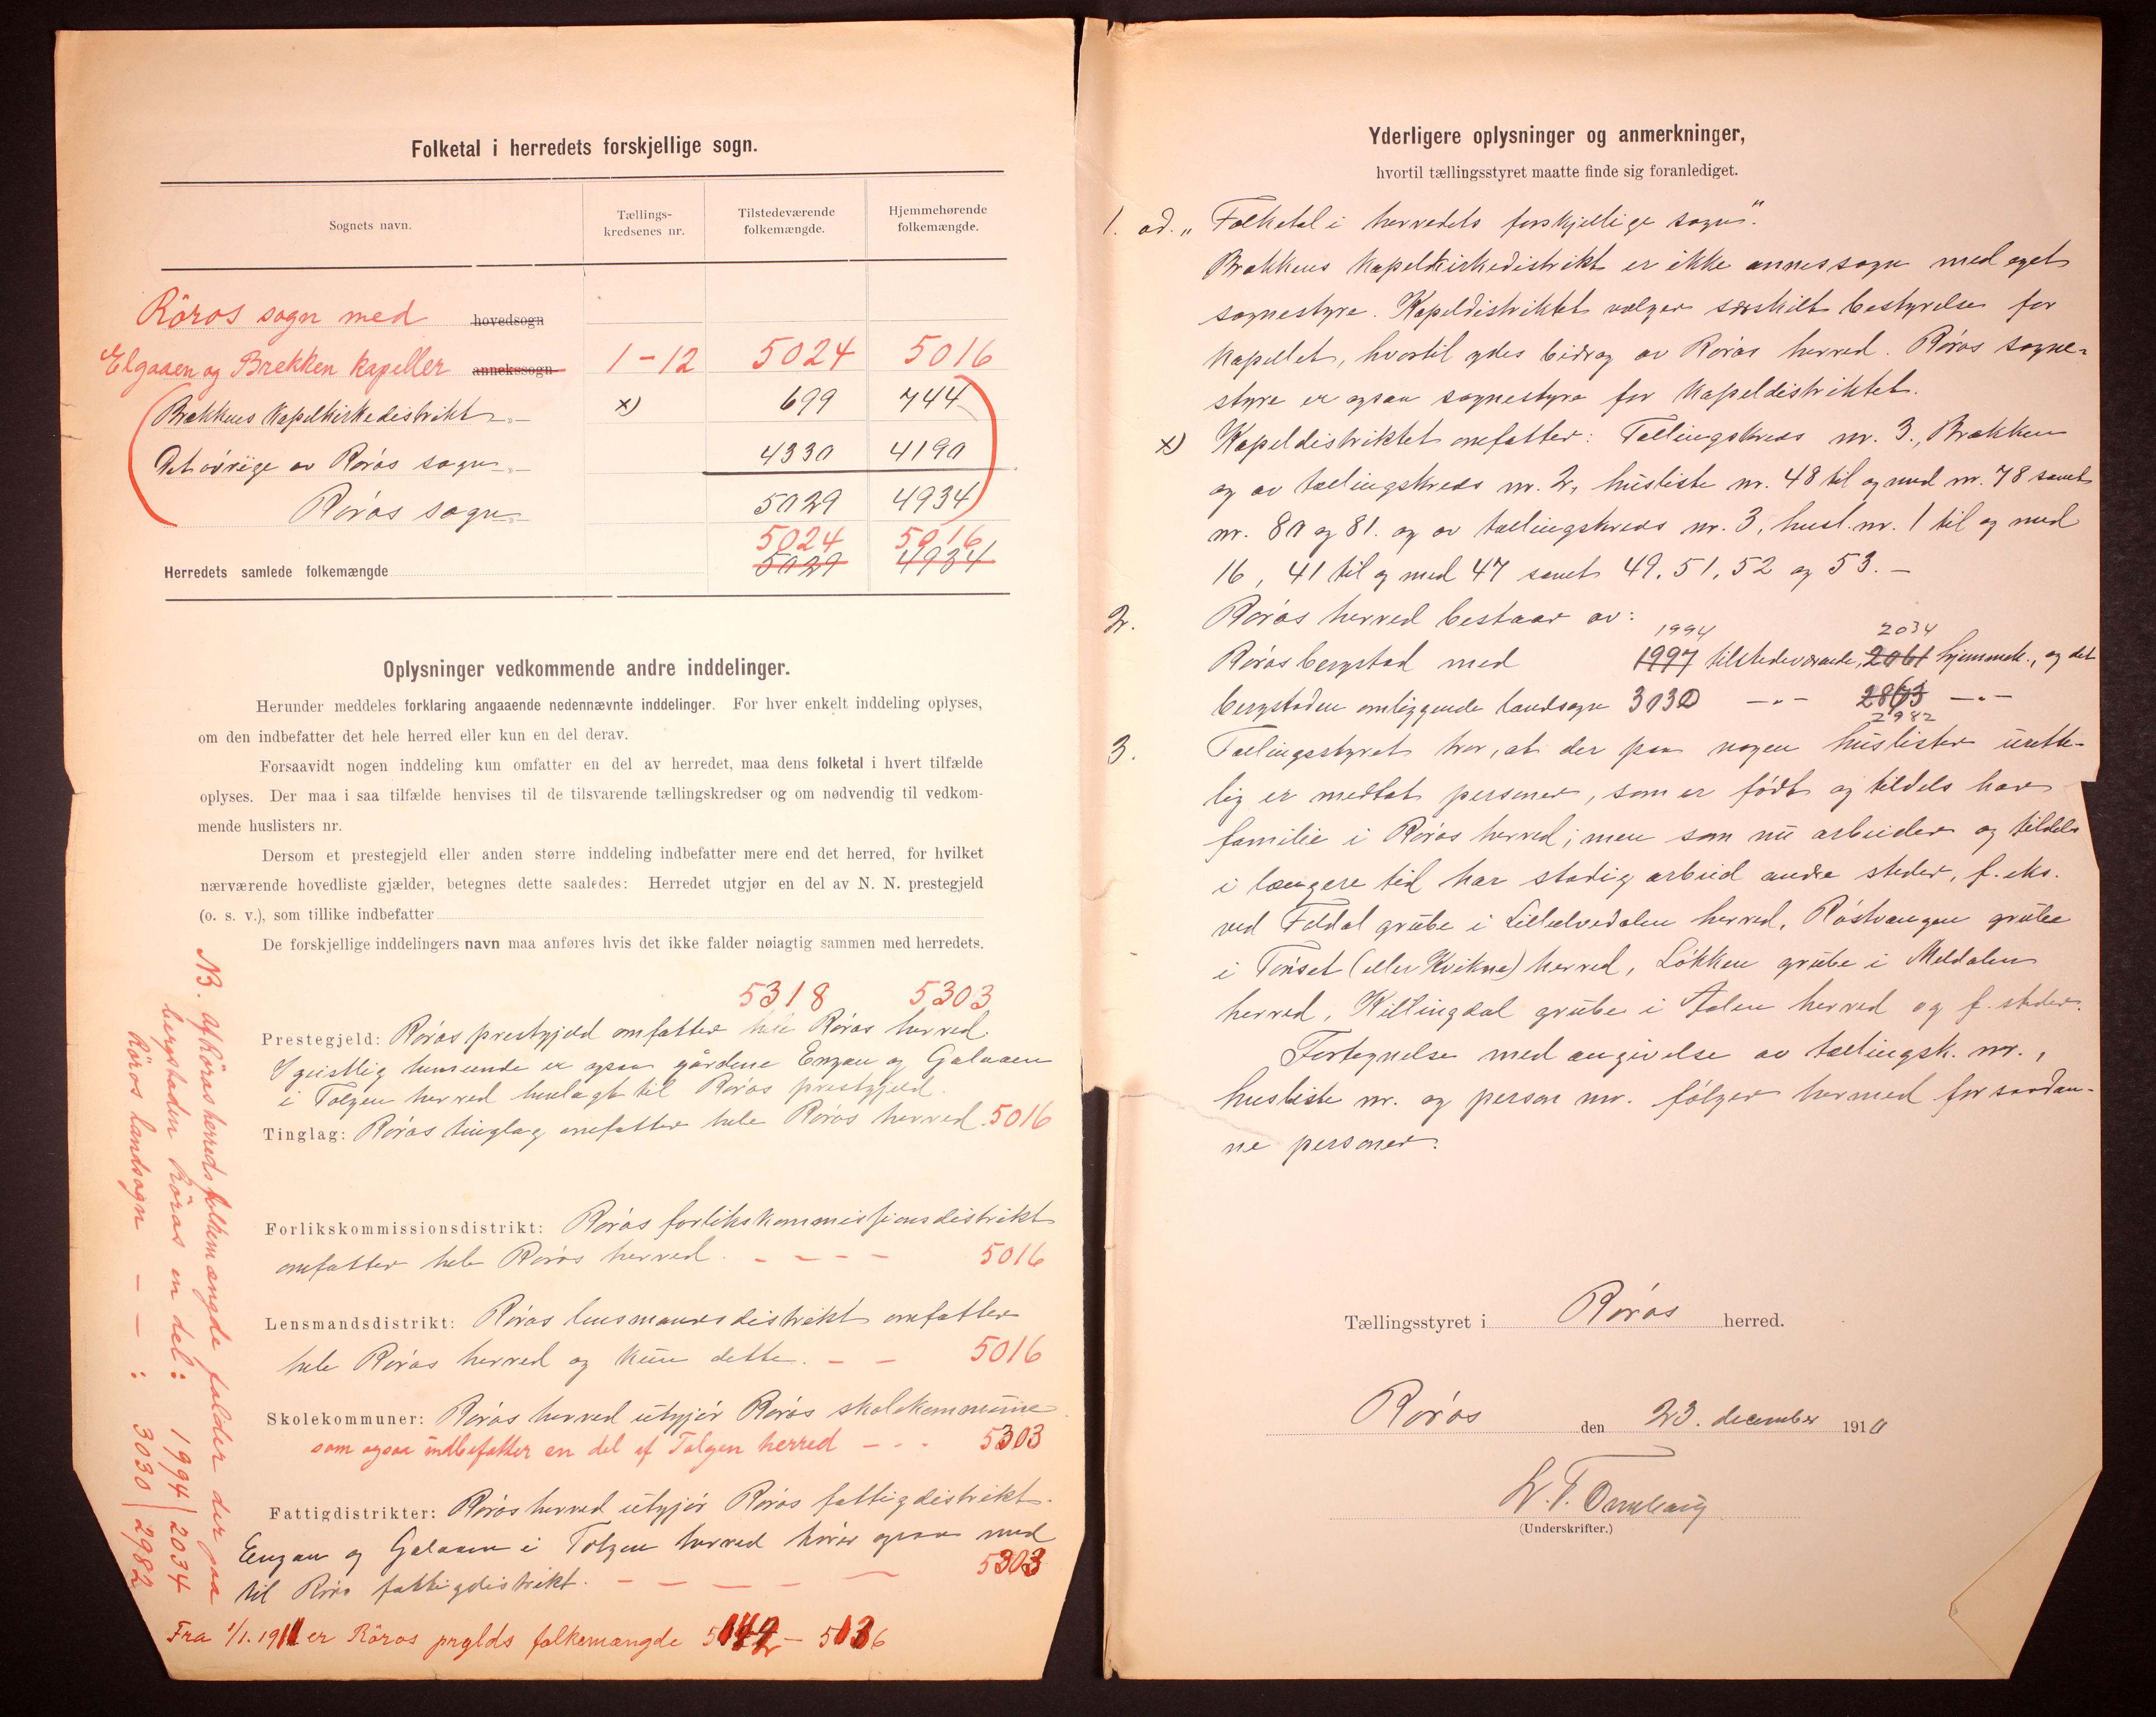 Folketal i herredets forskjellige sogn.
Sognets navn. Tællings-kredsenes nr. Tilstedeværende folkemængde. Hjemmehørende folkemængde.
Röros sogn med hovedsogn
Elgaaen og Brekken kapeller annekssogn 1-12 5024 5016
Brækkens Kapelkirkedistrikt -„- x) 699 744
Det øvrige av Røros sogn -„- 4330 4190
Røros sogn -„- 5029 4934
5024 5016
Herredets samlede folkemængde 5029 4934
Oplysninger vedkommende andre inddelinger.
Herunder meddeles forklaring angaaende nedennævnte inddelinger. For hver enkelt inddeling oplyses,
om den indbefatter det hele herred eller kun en del derav.
Forsaavidt nogen inddeling kun omfatter en del av herredet, maa dens folketal i hvert tilfælde
oplyses. Der maa i saa tilfælde henvises til de tilsvarende tællingskredser og om nødvendig til vedkom-
mende huslisters nr.
Dersom et prestegjeld eller anden større inddeling indbefatter mere end det herred, for hvilket
nærværende hovedliste gjælder, betegnes dette saaledes: Herredet utgjør en del av N. N. prestegjeld
(o. s. v.), som tillike indbefatter
De forskjellige inddelingers navn maa anføres hvis det ikke falder nøiagtig sammen med herredets.
5318 5303
Prestegjeld: Røros prestgjeld omfatter hele Røros herred.
I geistlig henseende er ogsaa gårdene Enzan og Galaaen
i Tolgen herred henlagt til Røros prestgjeld.
Tinglag: Røros tinglag omfatter hele Røros herred. 5016
Forlikskommissionsdistrikt: Røros forlikskommissionsdistrikt
omfatter hele Røros herred. - - - - 5016
Lensmandsdistrikt: Røros lensmannsdistrikt omfatter
hele Røros herred og kun dette. - - 5016
Skolekommuner: Røros herred utgjør Røros skolekommune
som ogsaa indbefatter en del af Tolgen herred - - - 5303
Fattigdistrikter: Røros herred utgjør Røros fattigdistrikt.
Enzan og Galaaen i Tolgen herred hører ogsaa med
til Røros fattigdistrikt. - - - - - 5303
Fra 1/1.1911 er Röros prgjlds folkemængde 5036
NB. af Röros herreds folkemængde falder der paa
bergstaden Röros en del: 1994 | 2034
Röros landsogn - - : 3030 | 2982
Yderligere oplysninger og anmerkninger,
hvortil tællingsstyret maatte finde sig foranlediget.
1. ad. „Folketal i herredets forskjellige sogn“.
Brækkens Kapelkirkedistrikt er ikke annessogn med eget
sognestyre. Kapeldistriktet vælger særskilt bestyrelse for
kapellet, hvortil ydes bidrag av Røros herred. Røros sogne-
styre er ogsaa sognestyre for kapeldistriktet.
x) Kapeldistriktet omfatter: Tællingskreds nr. 3., Brækken
og av tællingskreds nr. 2, husliste nr. 48 til og med nr. 78 samt
nr. 80 og 81. og av tællingskreds nr. 3, husl. nr. 1 til og med
16, 41 til og med 47 samt 49, 51, 52 og 53. -
2. Røros herred bestaar av:
1994 2034
Røros bergstad med 1997 tilstedeværende, 2061 hjemmeh., og det
bergstaden omliggende landsogn 3030 -„- 2863 -„-
2982
3. Tællingsstyret tror, at der paa nogen huslister urette-
lig er medtat personer, som er født og tildels har
familie i Røros herred; men som nu arbeider og tildels
i længere tid har stadig arbeid andre steder, f. eks.
ved Foldal grube i Lilleelvedalen herred, Røstvangen grube
i Tønset (eller Kvikne) herred, Løkken grube i Meldalen
herred, Killingdal grube i Aalen herred og f. steder.
Fortegnelse med angivelse av tællingsk. nr.,
husliste nr. og person nr. følger hermed for saadan-
ne personer.
Tællingsstyret i Røros herred.
Røros den 23. december 1910
(Underskrifter.)